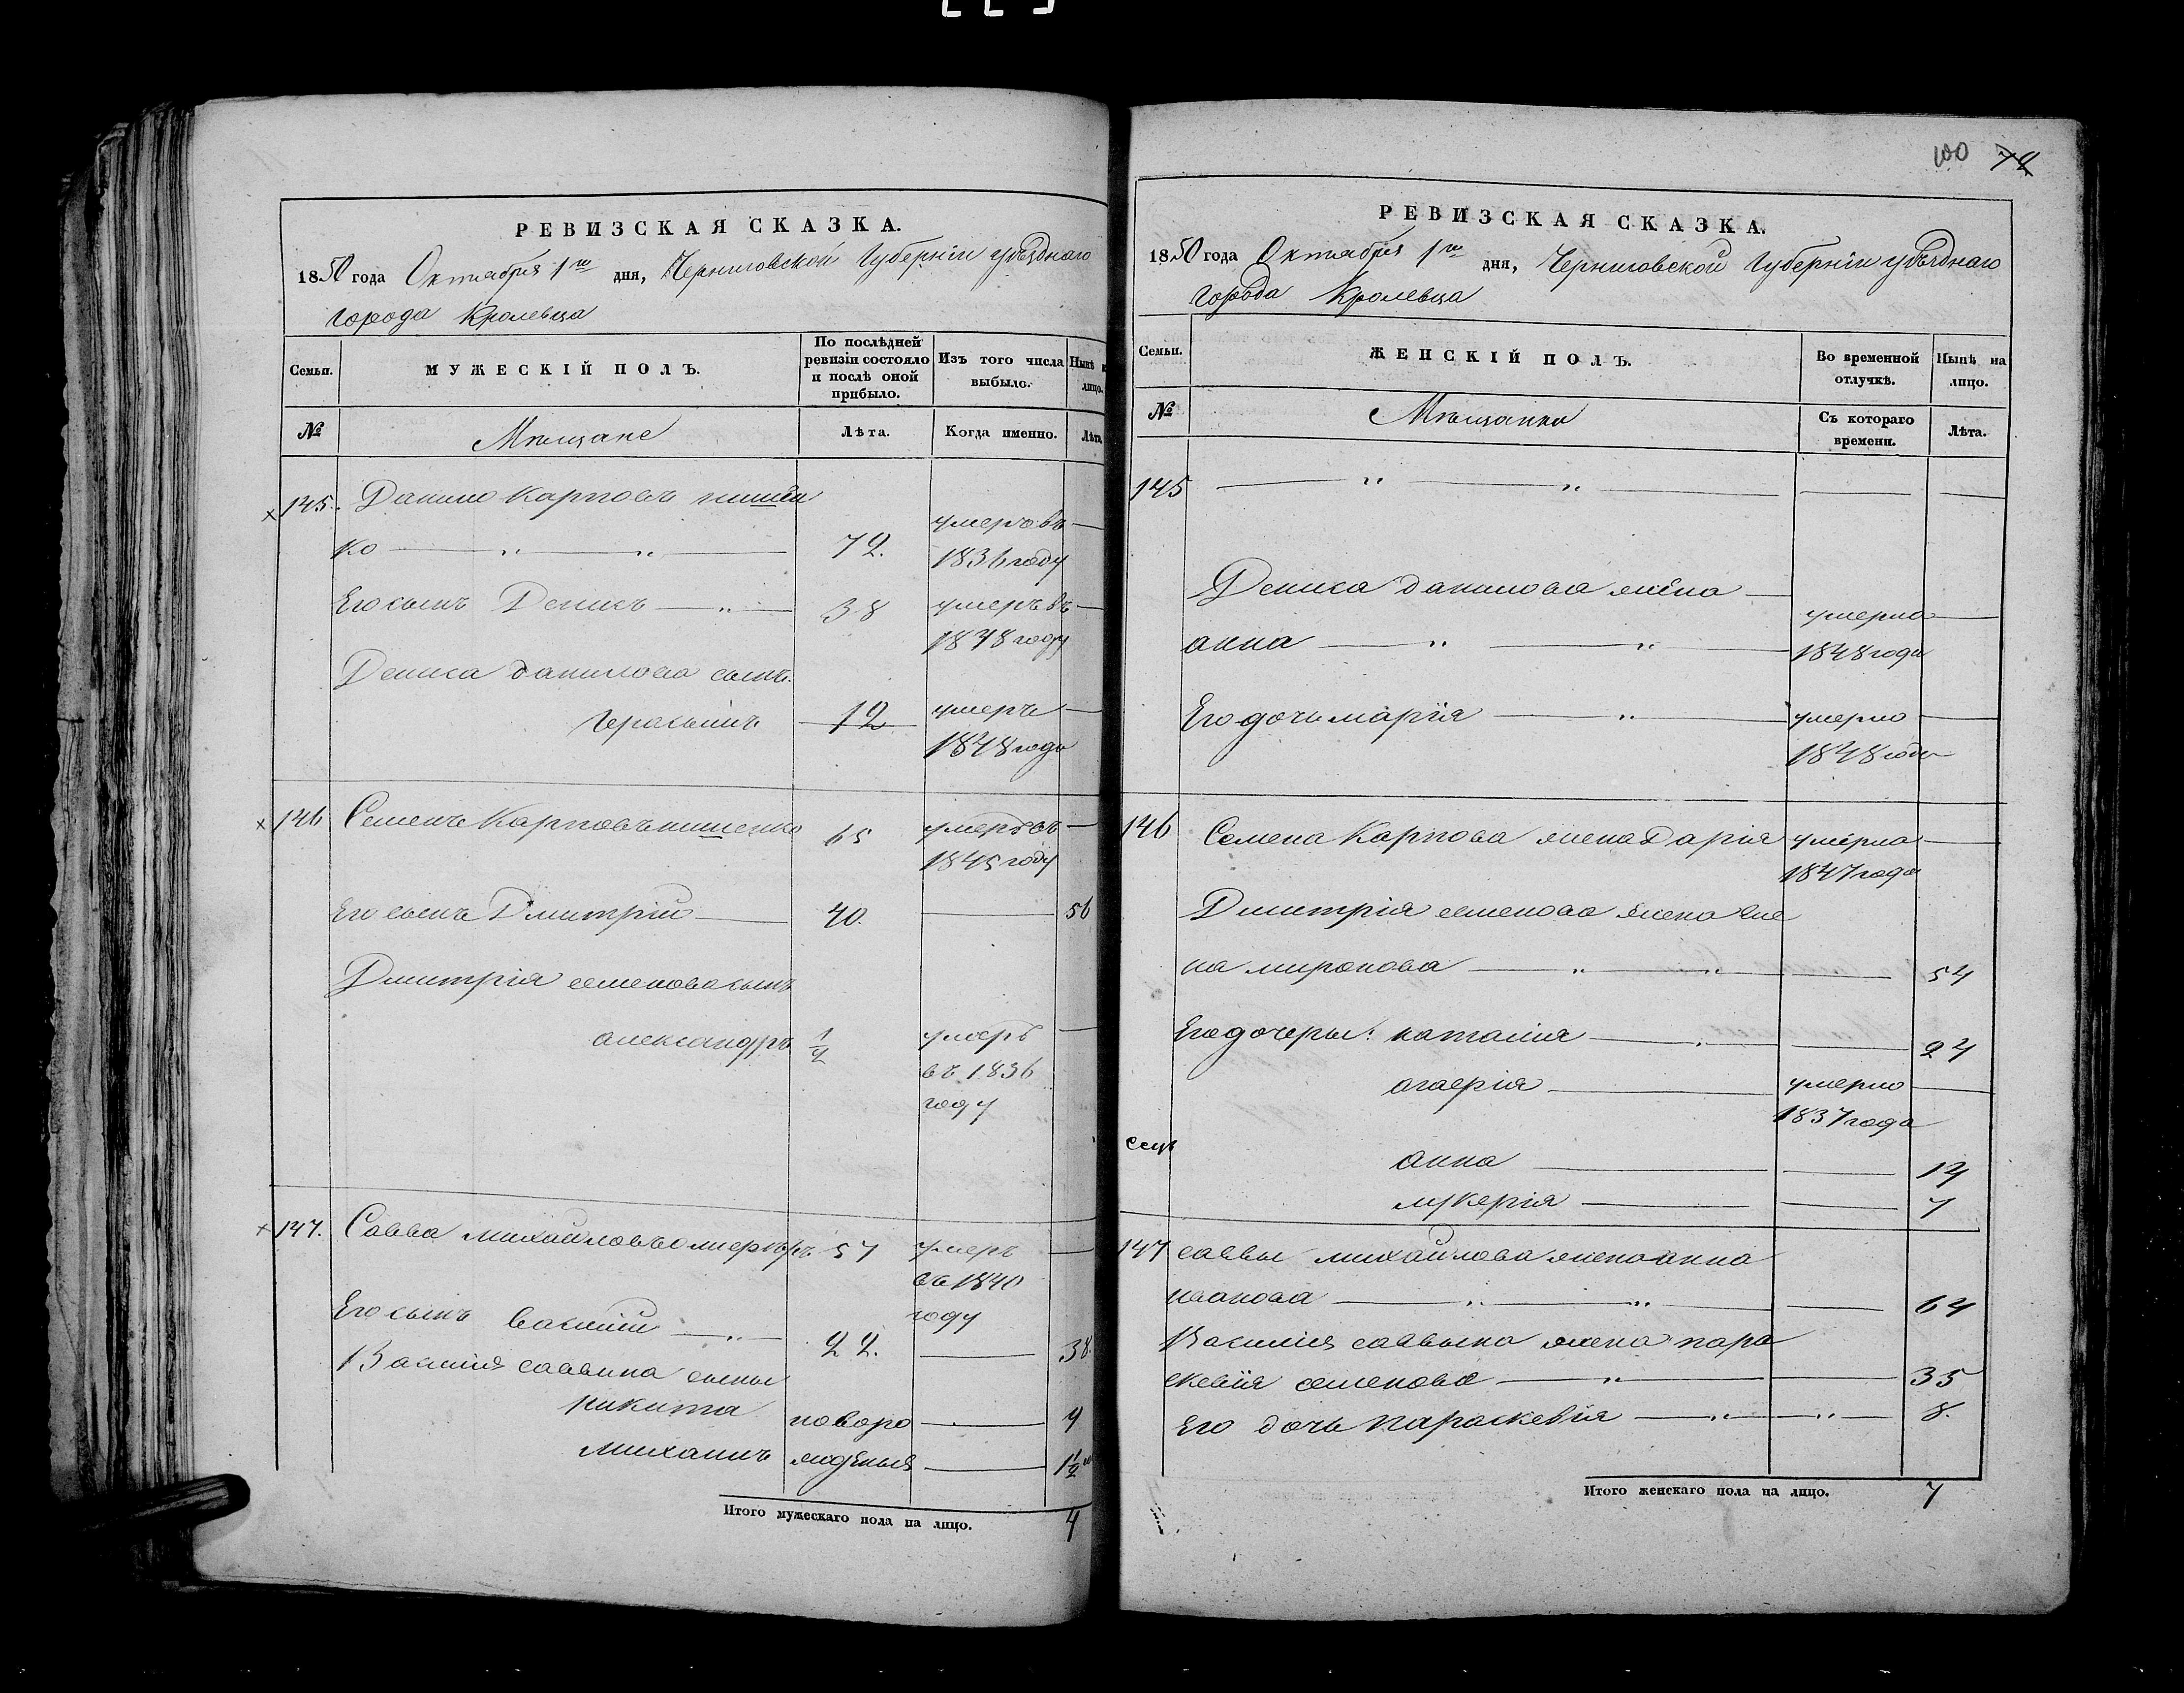 РЕВИЗСКАЯ СКАЗКА.
1850 года Октября 1го дня, Черниговской Губерніи уѣзднаго
города Кролевца
Семьи.
МУЖЕСКІЙ ПОЛЪ.
По послѣдней ревизіи состояло и послѣ оной прибыло.
Изъ того числа выбыло.
Нынѣ
лицо.
№
Мѣщане
Лѣта.
Когда именно.
Лѣта
145. Данило Карповъ
ко 72. умеръ въ 1836 году
Его сынъ Денисъ 38 умеръ въ 1848 году
Дениса Данилова сынъ
Герасимъ 12 умеръ 1848 года
146 Семенъ Карповъ 65 умеръ въ 1845 году
Его сынъ Дмитрій 40. 56
Дмитрія семенова сынъ
александръ 1/2 умеръ въ 1836 году
147. Савва михайловъ 57 умеръ въ 1840 году
Его сынъ Василій 22. 38.
Василія саввина сыны
никита новоро 4
Михаилъ жденыя 1 1/2
Итого мужескаго пола на лицо. 4
100 72
РЕВИЗСКАЯ СКАЗКА.
1850 года Октября 1го дня, Черниговской Губерніи уѣзднаго
города Кролевца
Семьи.
ЖЕНСКІЙ ПОЛЪ.
Во временной отлучкѣ.
Нынѣ на лицо.
№
Мѣщанки
Съ котораго времени.
Лѣта.
145
Дениса данилова жена
анна умерла 1848 года
Его дочь марія умерла 1848 года
146 Семена Карпова жена Дарія умерла 1847 года
Дмитрія семенова жена
на миронова 54
Его дочеры: наталія 24
умерла 1837 года
анна 14
лукерія 7
147 саввы михайлова жена анна
иванова 64
Василія саввына жена пара
скевія семенова 35
Его дочь параскевія 8.
Итого женскаго пола на лицо. 7